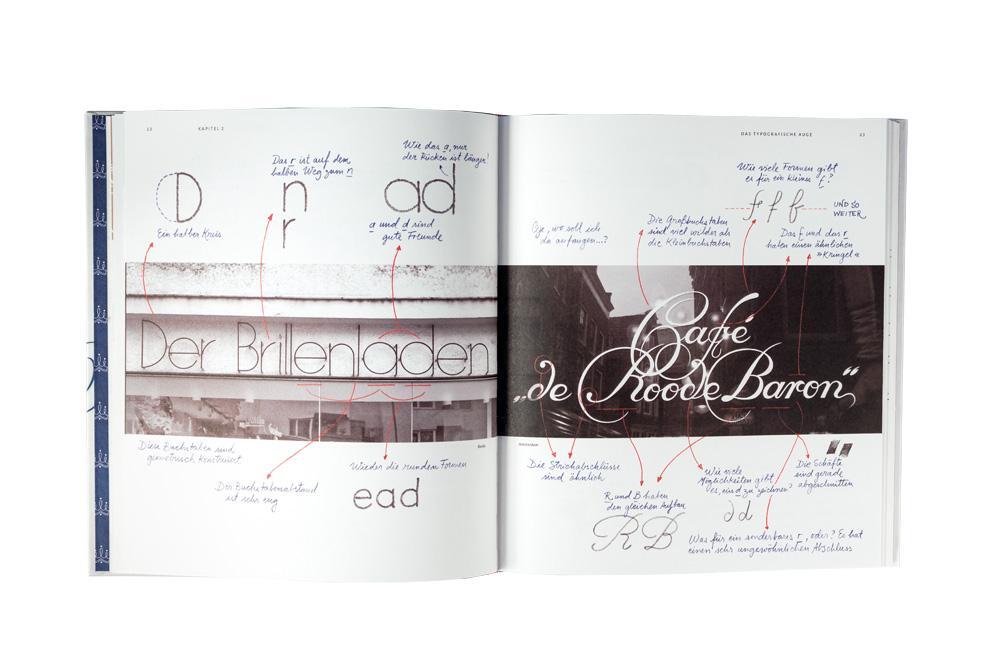 KAPITEL 2
Das r ist auf dem
halben Weg zum n
Wie das a, nur
der Rücken ist länger!
D
n
r
ad
Ein halber Kreis
a und d sind
gute Freunde
Der Brillenladen
Diese Buchstaben sind
geometrisch konstruiert
Der Buchstabenabstand
ist sehr eng
Wieder die runden Formen
ead
DAS TYPOGRAFISCHE AUGE
23
Wie viele Formen gibt
es für ein kleines f?
f f f
UND SO
WEITER
Oje, wo soll ich
da anfangen...?
Die Großbuchstaben
sind viel wilder als
die Kleinbuchstaben
Das f und das r
haben einen ähnlichen
»Kringel«
Café
„de Roode Baron“
Amsterdam
Die Strichabschlüsse
sind ähnlich
R und B haben
den gleichen Aufbau
R B
Wie viele
Möglichkeiten gibt
es, ein d zu zeichnen?
d d
Die Schäfte
sind gerade
abgeschnitten
Was für ein sonderbares r, oder? Es hat
einen sehr ungewöhnlichen Abschluss